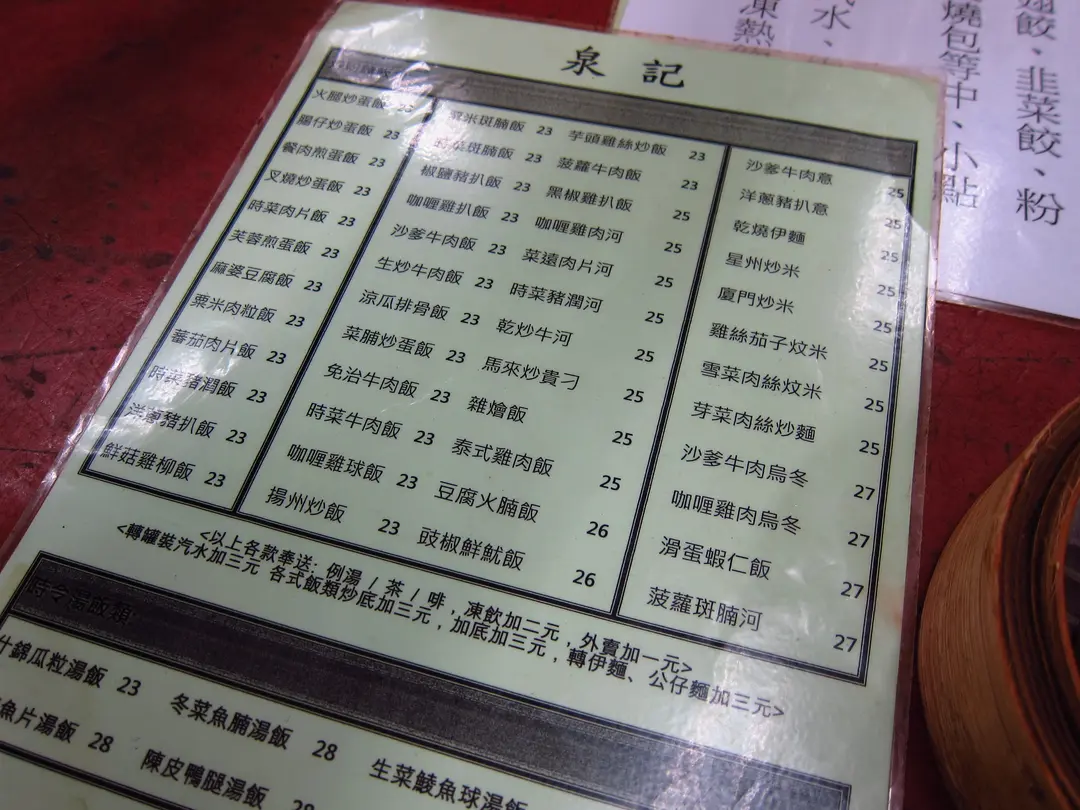 泉記
火腿炒蛋飯 23
腸仔炒蛋飯 23
餐肉煎蛋飯 23
叉燒炒蛋飯 23
時菜肉片飯 23
芙蓉煎蛋飯 23
麻婆豆腐飯 23
粟米肉粒飯 23
蕃茄肉片飯 23
時菜豬潤飯 23
洋蔥豬扒飯 23
鮮菇雞柳飯 23
粟米斑腩飯 23
時菜斑腩飯 23
椒鹽豬扒飯 23
咖喱雞扒飯 23
沙爹牛肉飯 23
生炒牛肉飯 23
涼瓜排骨飯 23
菜脯炒蛋飯 23
免治牛肉飯 23
時菜牛肉飯 23
咖喱雞球飯 23
揚州炒飯 23
芋頭雞絲炒飯 23
菠蘿牛肉飯 23
黑椒雞扒飯 25
咖喱雞肉河 25
菜遠肉片河 25
時菜豬潤河 25
乾炒牛河 25
馬來炒貴刁 25
雜燴飯 25
泰式雞肉飯 25
豆腐火腩飯 26
豉椒鮮魷飯 26
沙爹牛肉意 25
洋蔥豬扒意 25
乾燒伊麵 25
星州炒米 25
廈門炒米 25
雞絲茄子炆米 25
雪菜肉絲炆米 25
芽菜肉絲炒麵 25
沙爹牛肉烏冬 27
咖喱雞肉烏冬 27
滑蛋蝦仁飯 27
菠蘿斑腩河 27
<以上各款奉送: 例湯 / 茶 / 啡 , 凍飲加二元 , 外賣加一元>
<轉罐裝汽水加三元 各式飯類炒底加三元 , 加底加三元 , 轉伊麵、公仔麵加三元>
時令湯飯類
什錦瓜粒湯飯 23
冬菜魚腩湯飯 28
生菜鯪魚球湯飯
魚片湯飯 28
陳皮鴨腿湯飯 28
餃、韭菜餃、粉
燒包等中、小點
水、
凍熱